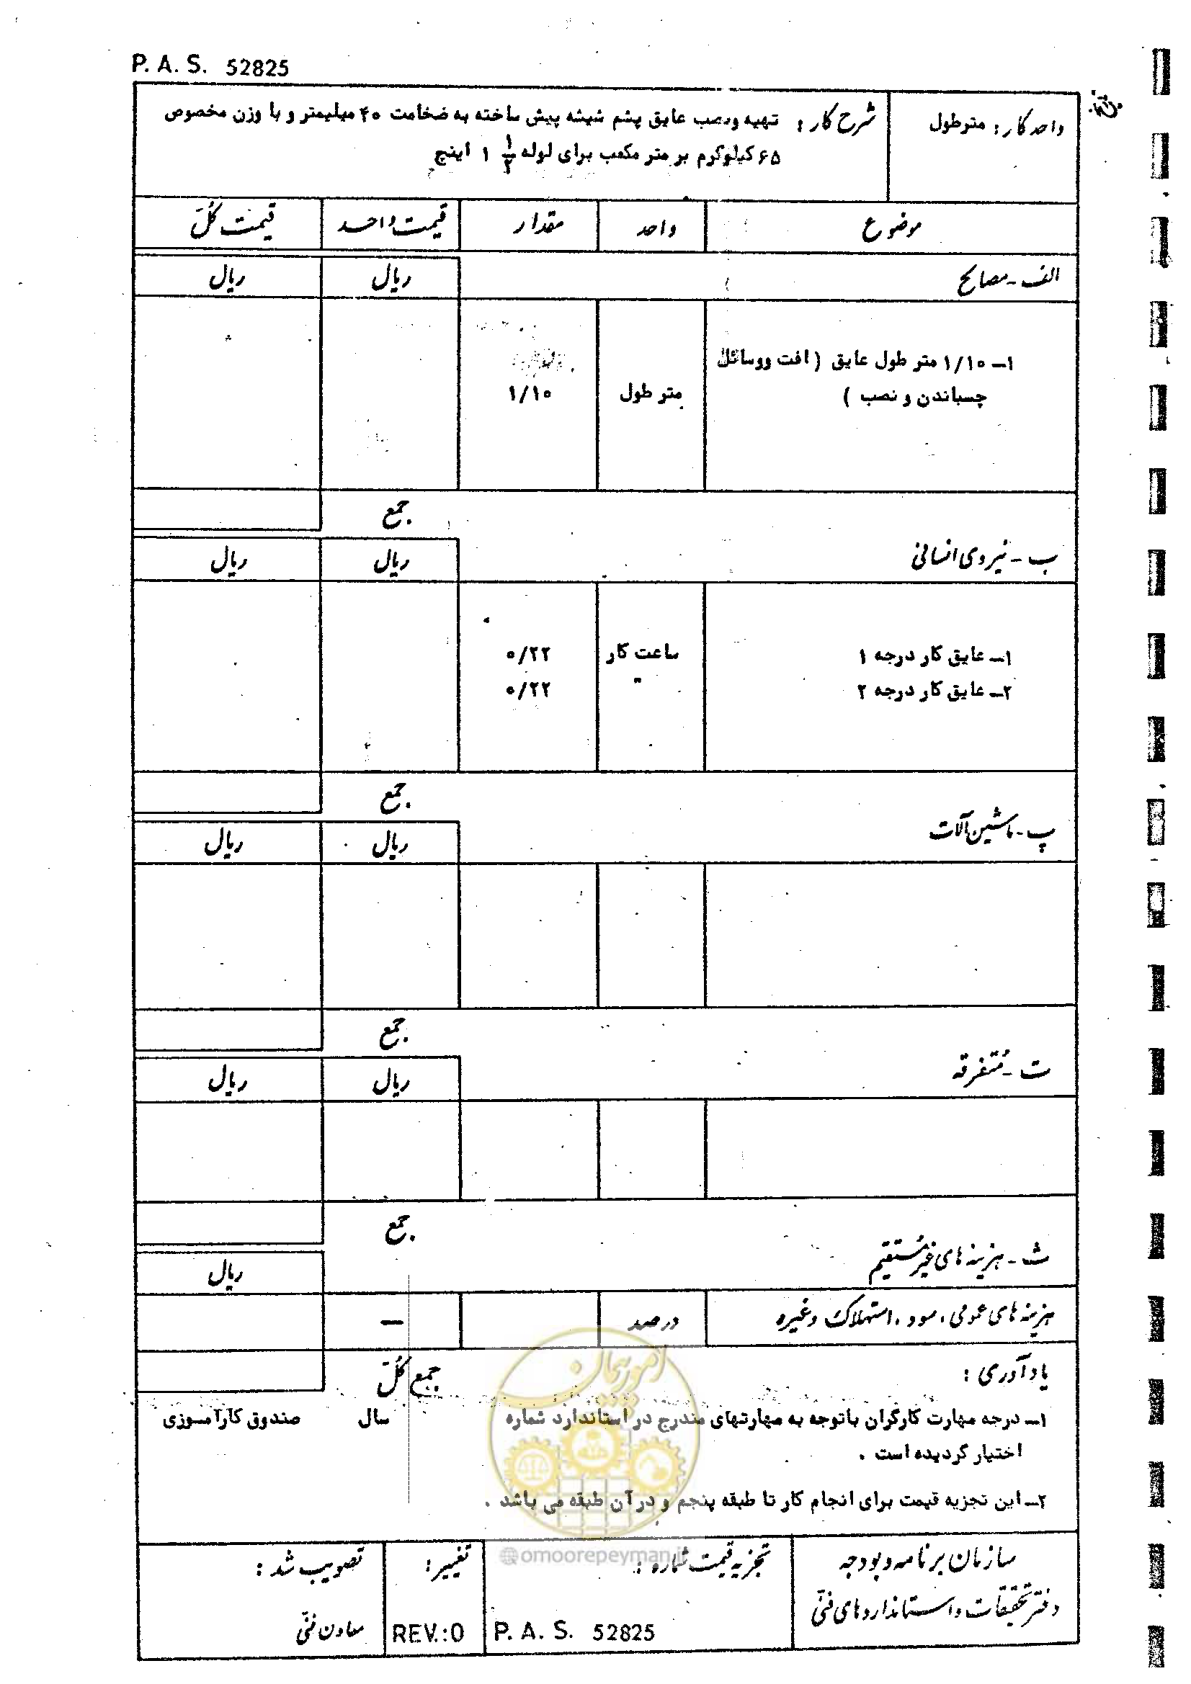 P. A. S. 52825
واحد کار : مترطول
شرح کار : تهیه ونصب عایق پشم شیشه پیش ساخته به ضخامت ۴۰ میلیمتر و با وزن مخصوص
۶۵ کیلوگرم بر متر مکعب برای لوله ۱ ۱/۲ اینچ
موضوع واحد مقدار قیمت واحد قیمت کل
الف - مصالح ریال ریال
۱- ۱/۱۰ متر طول عایق ( افت ووسائل
چسباندن و نصب ) متر طول ۱/۱۰
جمع
ب - نیروی انسانی ریال ریال
۱- عایق کار درجه ۱ ساعت کار ۰/۲۲
۲- عایق کار درجه ۲ " ۰/۲۲
جمع
پ - ماشین آلات ریال ریال
جمع
ت - متفرقه ریال ریال
جمع
ث - هزینه های غیر مستقیم ریال
هزینه های عمومی ، سود ، استهلاک وغیره درصد —
یادآوری : جمع کل
۱- درجه مهارت کارگران باتوجه به مهارتهای مندرج در استاندارد شماره سال صندوق کارآموزی
اختیار گردیده است .
۲- این تجزیه قیمت برای انجام کار تا طبقه پنجم و در آن طبقه می باشد .
امور پیمان
@omoorepeyman.ir
سازمان برنامه و بودجه
دفتر تحقیقات و استانداردهای فنی
تجزیه قیمت شماره :
P. A. S. 52825
تغییر :
REV.:0
تصویب شد :
معاون فنی